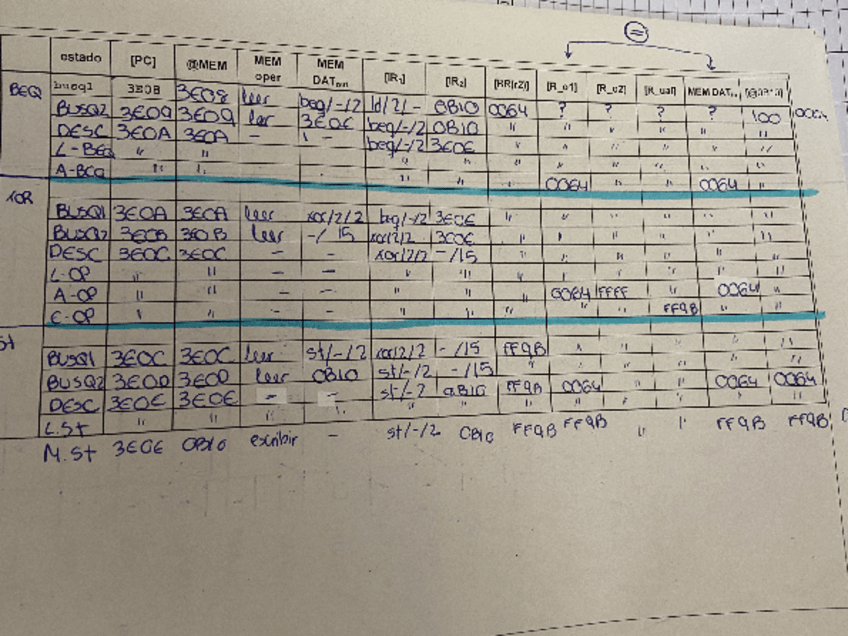 =
estado [PC] @MEM MEM oper MEM DATout [IR1] [IR2] [RR(r2)] [R_o1] [R_o2] [R_ual] MEM DAT
BEQ busq1 3E08 3E08 leer beq/-/2 ld/2/- 0B10 0064 ? ? ? ? 100 0064
BUSQ2 3E09 3E09 leer 3E0E beq/-/2 0B10 " " " " "
DESC 3E0A 3E0A - - beq/-/2 3E0E " " " " "
L-BEQ " " " " " " " " "
A-BEQ " " " " 0064 " " 0064 "
XOR BUSQ1 3E0A 3E0A leer xor/2/2 beq/-/2 3E0E " " " " " "
BUSQ2 3E0B 3E0B leer -/15 xor/2/2 3E0E " " " " " "
DESC 3E0C 3E0C - - xor/2/2 -/15 " " " " "
L-OP " " - - " " " " " " "
A-OP " " - - " " 0064 FFFF " 0064 "
E-OP " " - - " " " " " FF9B " "
St BUSQ1 3E0C 3E0C leer st/-/2 xor/2/2 -/15 FF9B " " " " "
BUSQ2 3E0D 3E0D leer 0B10 st/-/2 -/15 " " " " " "
DESC 3E0E 3E0E - - st/-/2 0B10 FF9B 0064 " " 0064 0064
L.St " " " " " " " " " "
M.St 3E0E 0B10 escribir - st/-/2 0B10 FF9B FF9B " " FF9B FF9B